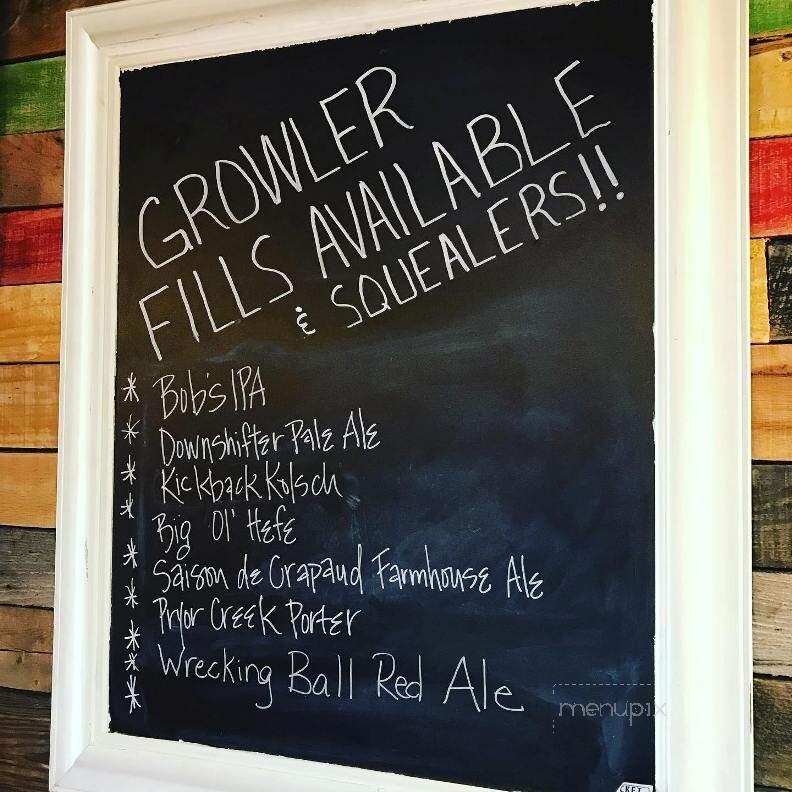 GROWLER
FILLS AVAILABLE
& SQUEALERS!!
* Bob's IPA
* Downshifter Pale Ale
* Kickback Kolsch
* Big Ol' Hefe
* Saison de Crapaud Farmhouse Ale
* Pryor Creek Porter
* Wrecking Ball Red Ale
*
*
menupix